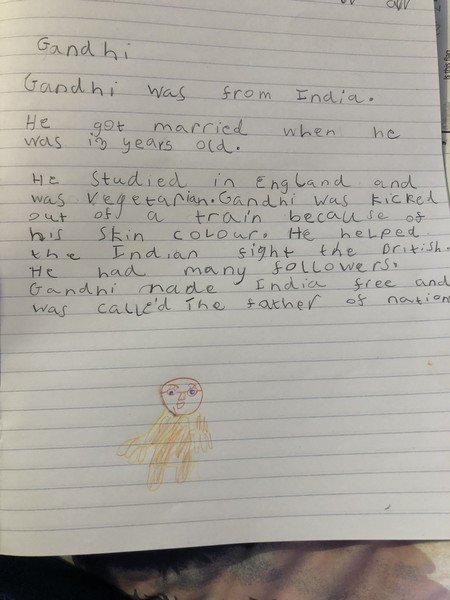 Gandhi
Gandhi was from India.
He got married when he
was 13 years old.
He studied in England and
was vegetarian. Gandhi was kicked
out of a train because of
his skin colour. He helped
the Indian fight the British.
He had many followers.
Gandhi made India free and
was called The father of nation